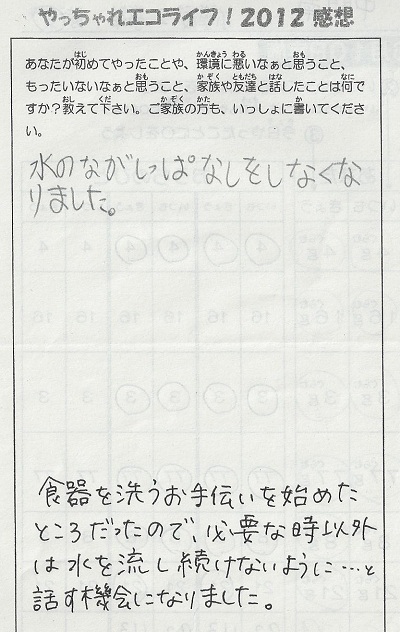 やっちゃれエコライフ！2012 感想
あなたが初めてやったことや、環境に悪いなぁと思うこと、
もったいないなぁと思うこと、家族や友達と話したことは何で
すか？教えて下さい。ご家族の方も、いっしょに書いてくださ
い。
水のながしっぱなしをしなくな
りました。
食器を洗うお手伝いを始めた
ところだったので、必要な時以外
は水を流し続けないように…と
話す機会になりました。